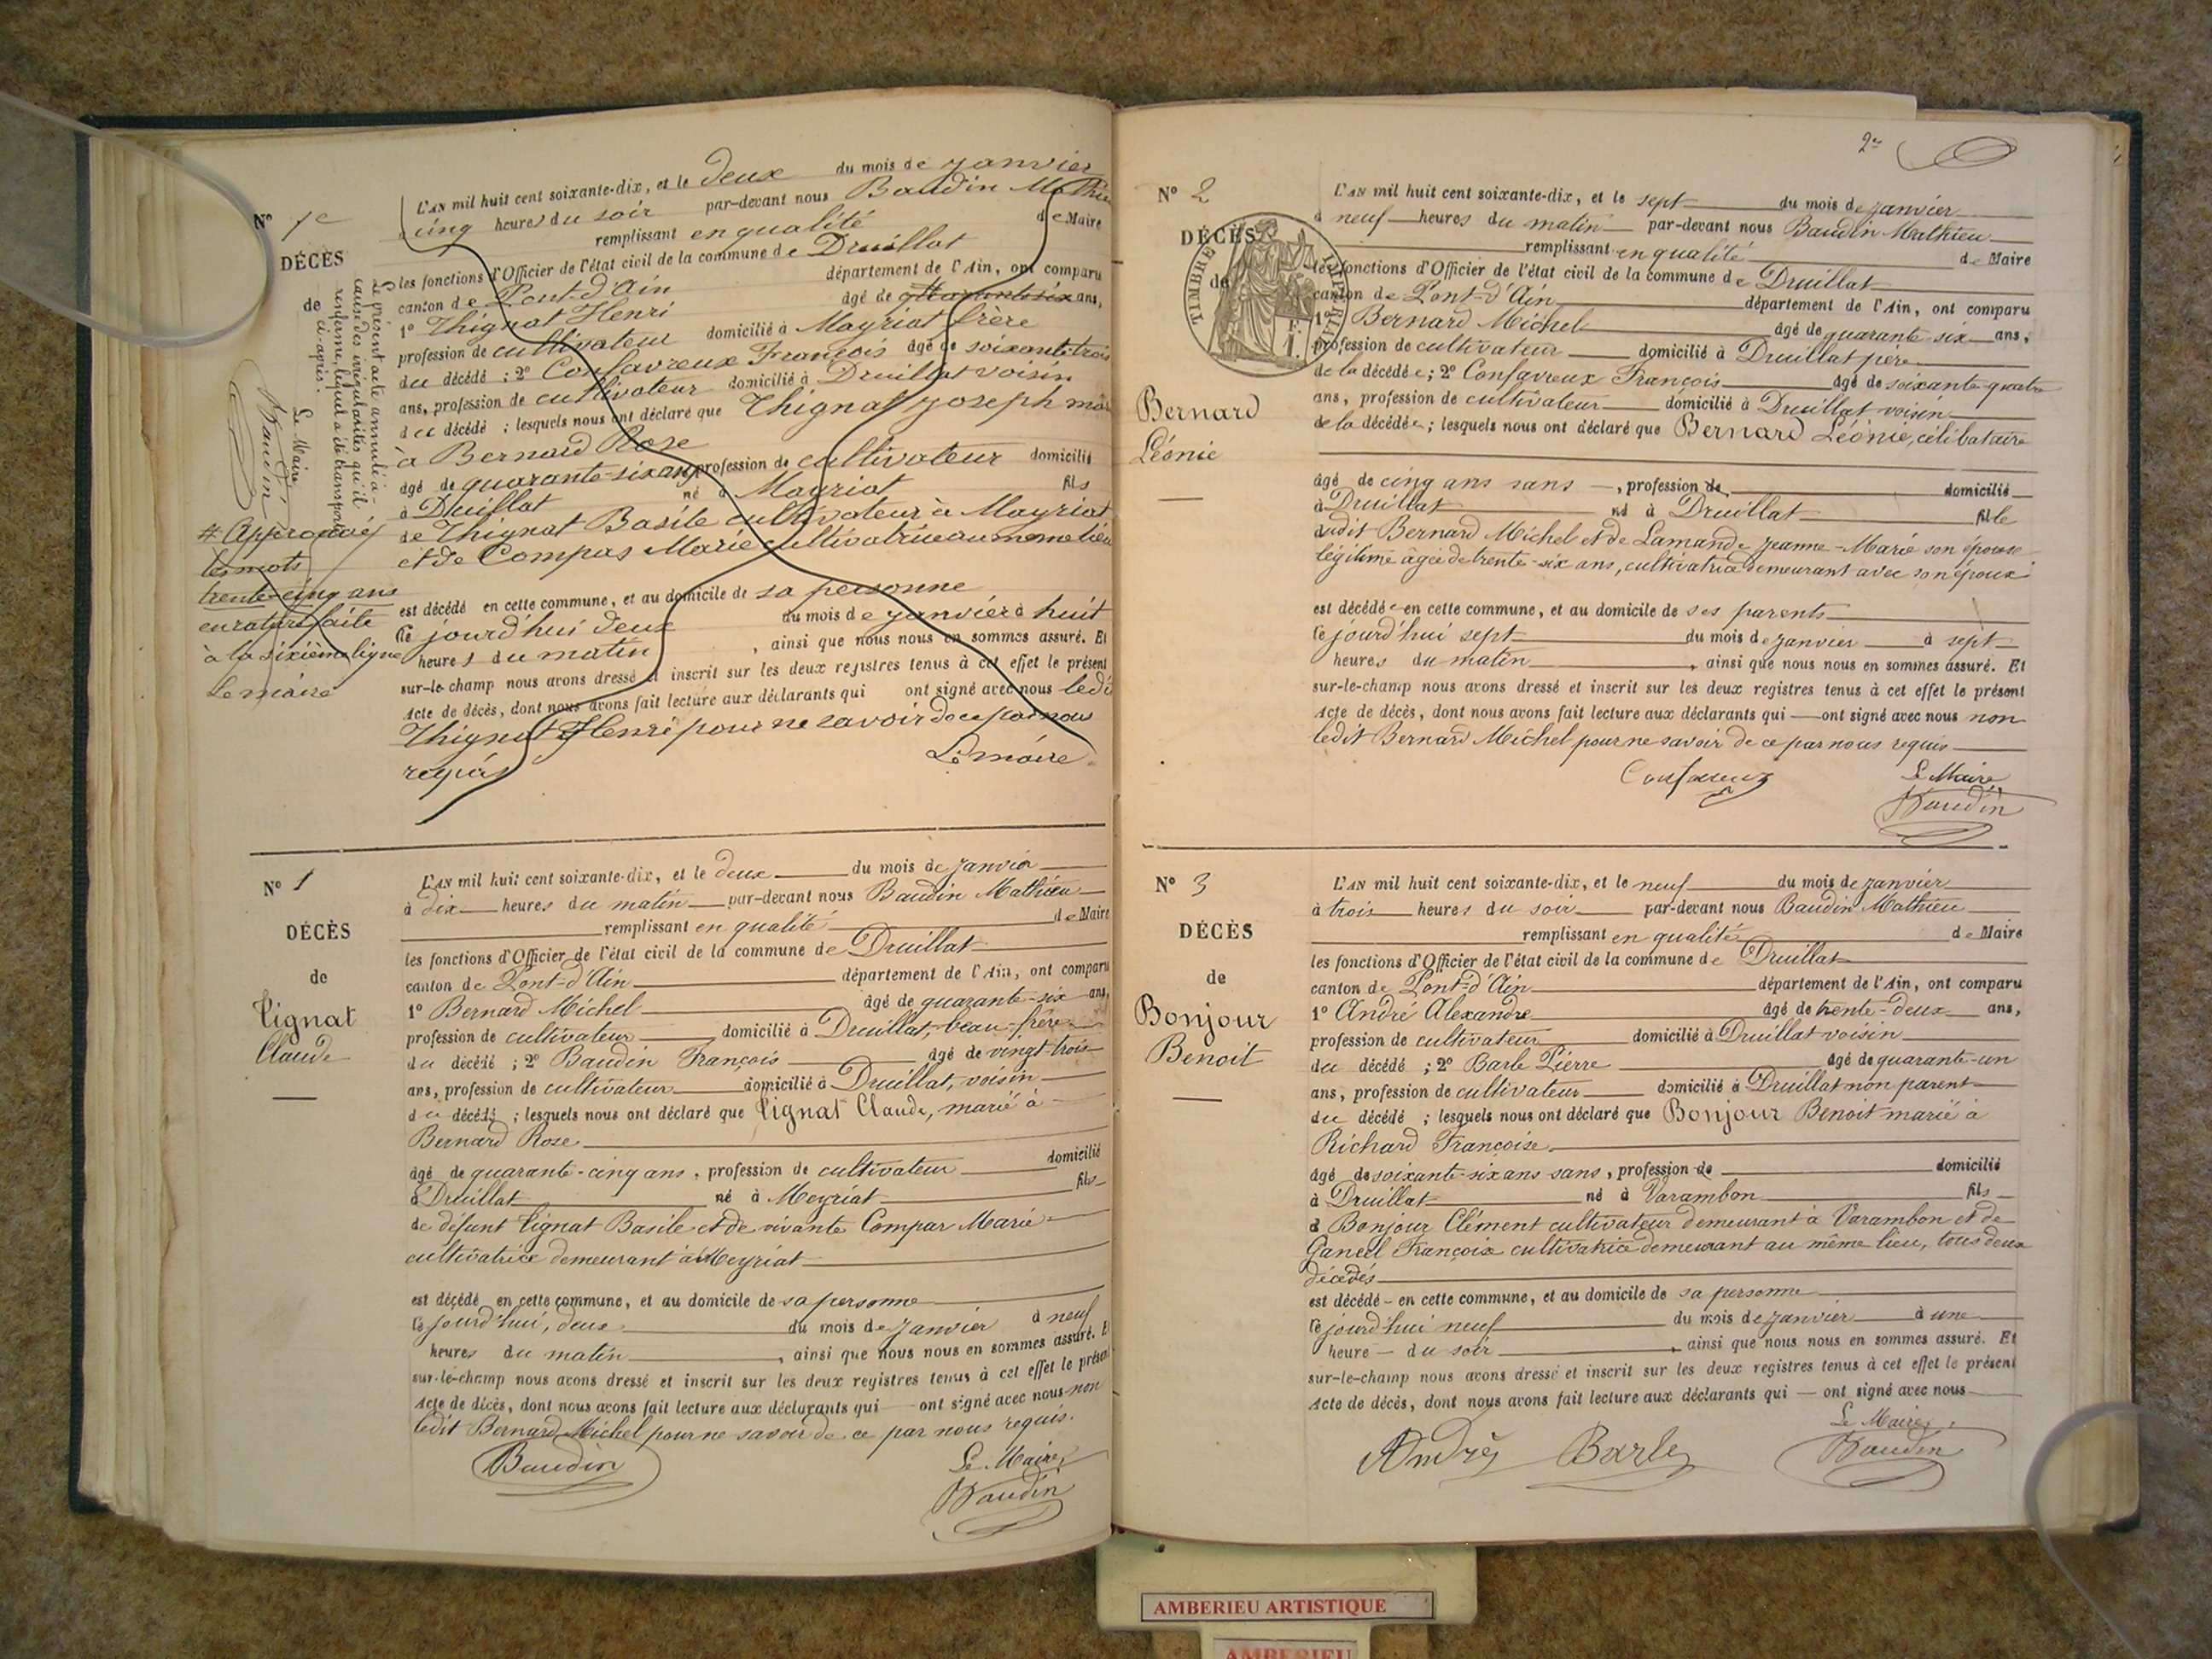 N° 1e
DÉCÈS
de
Le présent acte annulé à
cause des irrégularités qu'il
renferme, lequel a été transporté
ci-après.
Le Maire
Baudin
# Approuvé
les mots
trente-cinq ans
en rature faite
à la sixième ligne
Le maire
L'AN mil huit cent soixante-dix, et le deux du mois de janvier
cinq heures du soir par-devant nous Baudin Mathieu
remplissant en qualité de Maire
les fonctions d'Officier de l'état civil de la commune de Druillat
canton de Pont-d'Ain département de l'Ain, ont comparu
1° Thignat Henri âgé de quarante six ans,
profession de cultivateur domicilié à Mayriat frère
du décédé ; 2° Confavreux François âgé de soixante trois
ans, profession de cultivateur domicilié à Druillat voisin
du décédé ; lesquels nous ont déclaré que Thignat Joseph marié
à Bernard Rose
âgé de quarante-six ans profession de cultivateur domicilié
à Druillat né à Mayriat fils
de Thignat Basile cultivateur à Mayriat
et de Compas Marie cultivatrice au même lieu
est décédé en cette commune, et au domicile de sa personne
ce jourd'hui deux du mois de janvier à huit
heures du matin , ainsi que nous nous en sommes assuré. Et
sur-le-champ nous avons dressé et inscrit sur les deux registres tenus à cet effet le présent
Acte de décès, dont nous avons fait lecture aux déclarants qui ont signé avec nous ledi
Thignat Henri pour ne savoir de ce par nous
requis
Le maire
N° 1
DÉCÈS
de
Tignat
Claude
L'AN mil huit cent soixante-dix, et le deux du mois de janvier
à dix heures du matin par-devant nous Baudin Mathieu
remplissant en qualité de Maire
les fonctions d'Officier de l'état civil de la commune de Druillat
canton de Pont-d'Ain département de l'Ain, ont comparu
1° Bernard Michel âgé de quarante-six ans,
profession de cultivateur domicilié à Druillat, beau-frère
du décédé ; 2° Baudin François âgé de vingt-trois
ans, profession de cultivateur domicilié à Druillat, voisin
du décédé ; lesquels nous ont déclaré que Tignat Claude, marié à
Bernard Rose
âgé de quarante-cinq ans, profession de cultivateur domicilié
à Druillat né à Meyriat fils
de défunt Tignat Basile et de vivante Compar Marie
cultivatrice demeurant à Meyriat
est décédé en cette commune, et au domicile de sa personne
ce jourd'hui, deux du mois de janvier à neuf
heures du matin , ainsi que nous nous en sommes assuré. Et
sur-le-champ nous avons dressé et inscrit sur les deux registres tenus à cet effet le présent
Acte de décès, dont nous avons fait lecture aux déclarants qui ont signé avec nous non
ledit Bernard Michel pour ne savoir de ce par nous requis.
Baudin
Le Maire
Baudin
2e
N° 2
DÉCÈS
de
TIMBRE IMPERIAL
Bernard
Léonie
L'AN mil huit cent soixante-dix, et le sept du mois de janvier
à neuf heures du matin par-devant nous Baudin Mathieu
remplissant en qualité de Maire
les fonctions d'Officier de l'état civil de la commune de Druillat
canton de Pont-d'Ain département de l'Ain, ont comparu
1° Bernard Michel âgé de quarante six ans,
profession de cultivateur domicilié à Druillat père
de la décédée ; 2° Confavreux François âgé de soixante-quatre
ans, profession de cultivateur domicilié à Druillat voisin
de la décédée ; lesquels nous ont déclaré que Bernard Léonie, célibataire
âgé de cinq ans sans , profession de domicilié
à Druillat né à Druillat fille
dudit Bernard Michel et de Lamande Jeanne-Marie son épouse
légitime âgée de trente-six ans, cultivatrice demeurant avec son époux
est décédée en cette commune, et au domicile de ses parents
ce jourd'hui sept du mois de janvier à sept
heures du matin , ainsi que nous nous en sommes assuré. Et
sur-le-champ nous avons dressé et inscrit sur les deux registres tenus à cet effet le présent
Acte de décès, dont nous avons fait lecture aux déclarants qui ont signé avec nous non
ledit Bernard Michel pour ne savoir de ce par nous requis
Confavreux
Le Maire
Baudin
N° 3
DÉCÈS
de
Bonjour
Benoit
L'AN mil huit cent soixante-dix, et le neuf du mois de janvier
à trois heures du soir par-devant nous Baudin Mathieu
remplissant en qualité de Maire
les fonctions d'Officier de l'état civil de la commune de Druillat
canton de Pont-d'Ain département de l'Ain, ont comparu
1° André Alexandre âgé de trente-deux ans,
profession de cultivateur domicilié à Druillat voisin
du décédé ; 2° Barle Pierre âgé de quarante-un
ans, profession de cultivateur domicilié à Druillat non parent
du décédé ; lesquels nous ont déclaré que Bonjour Benoit marié à
Richard Françoise
âgé de soixante-six ans sans, profession de domicilié
à Druillat né à Varambon fils
d Bonjour Clément cultivateur demeurant à Varambon et de
Ganeel Françoise cultivatrice demeurant au même lieu, tous deux
décédés
est décédé en cette commune, et au domicile de sa personne
ce jourd'hui neuf du mois de janvier à une
heure du soir , ainsi que nous nous en sommes assuré. Et
sur-le-champ nous avons dressé et inscrit sur les deux registres tenus à cet effet le présent
Acte de décès, dont nous avons fait lecture aux déclarants qui ont signé avec nous
André Barle
Le Maire
Baudin
AMBERIEU ARTISTIQUE
AMBERIEU